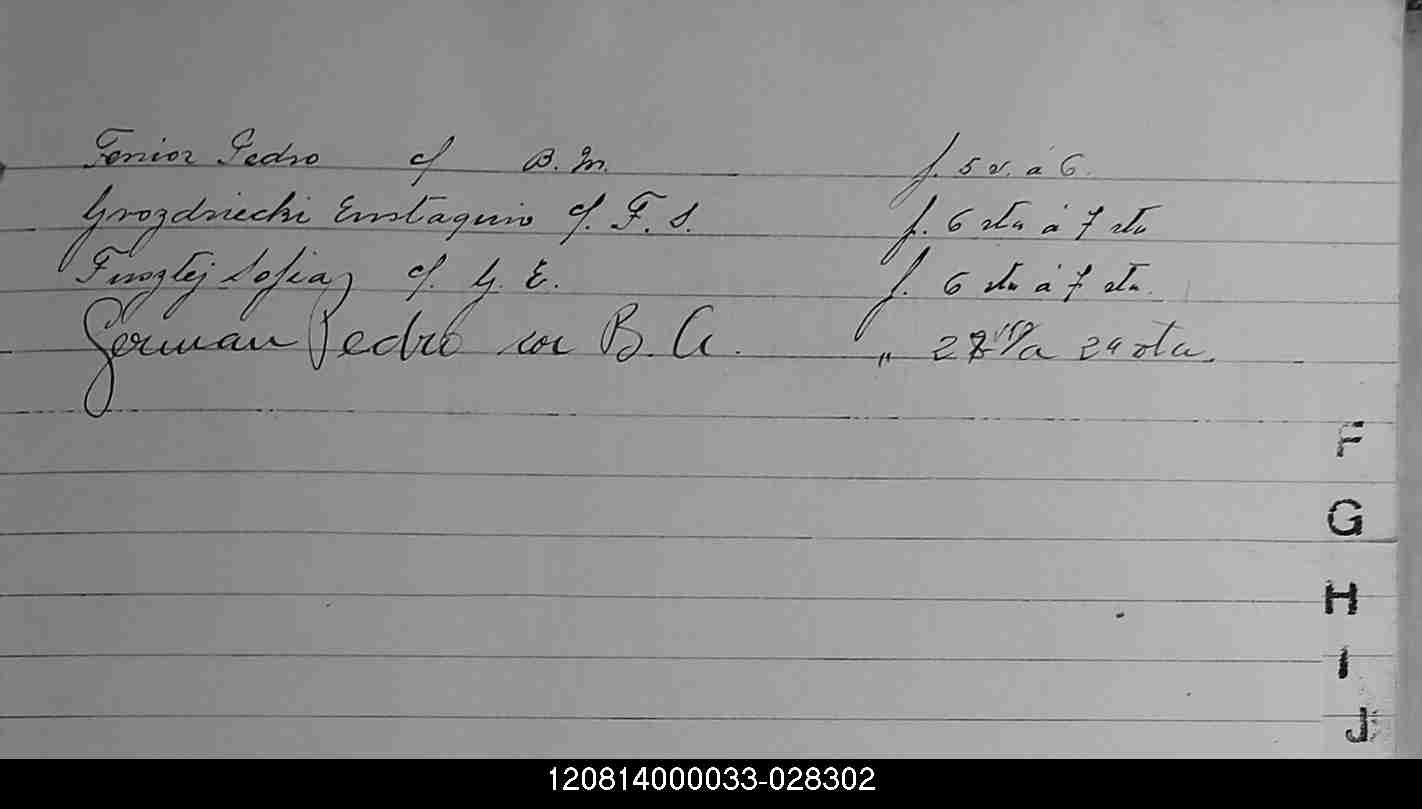 Ferrior Pedro c/ B. M. f. 5 v. á 6.
Grozdziecki Eustaquio c/. F. S. f. 6 vta á 7 vta
Fusztej Sofia c/. G. E. f. 6 vta á 7 vta.
German Pedro con B. G. " a 24 vta.
F
G
H
I
J
120814000033-028302